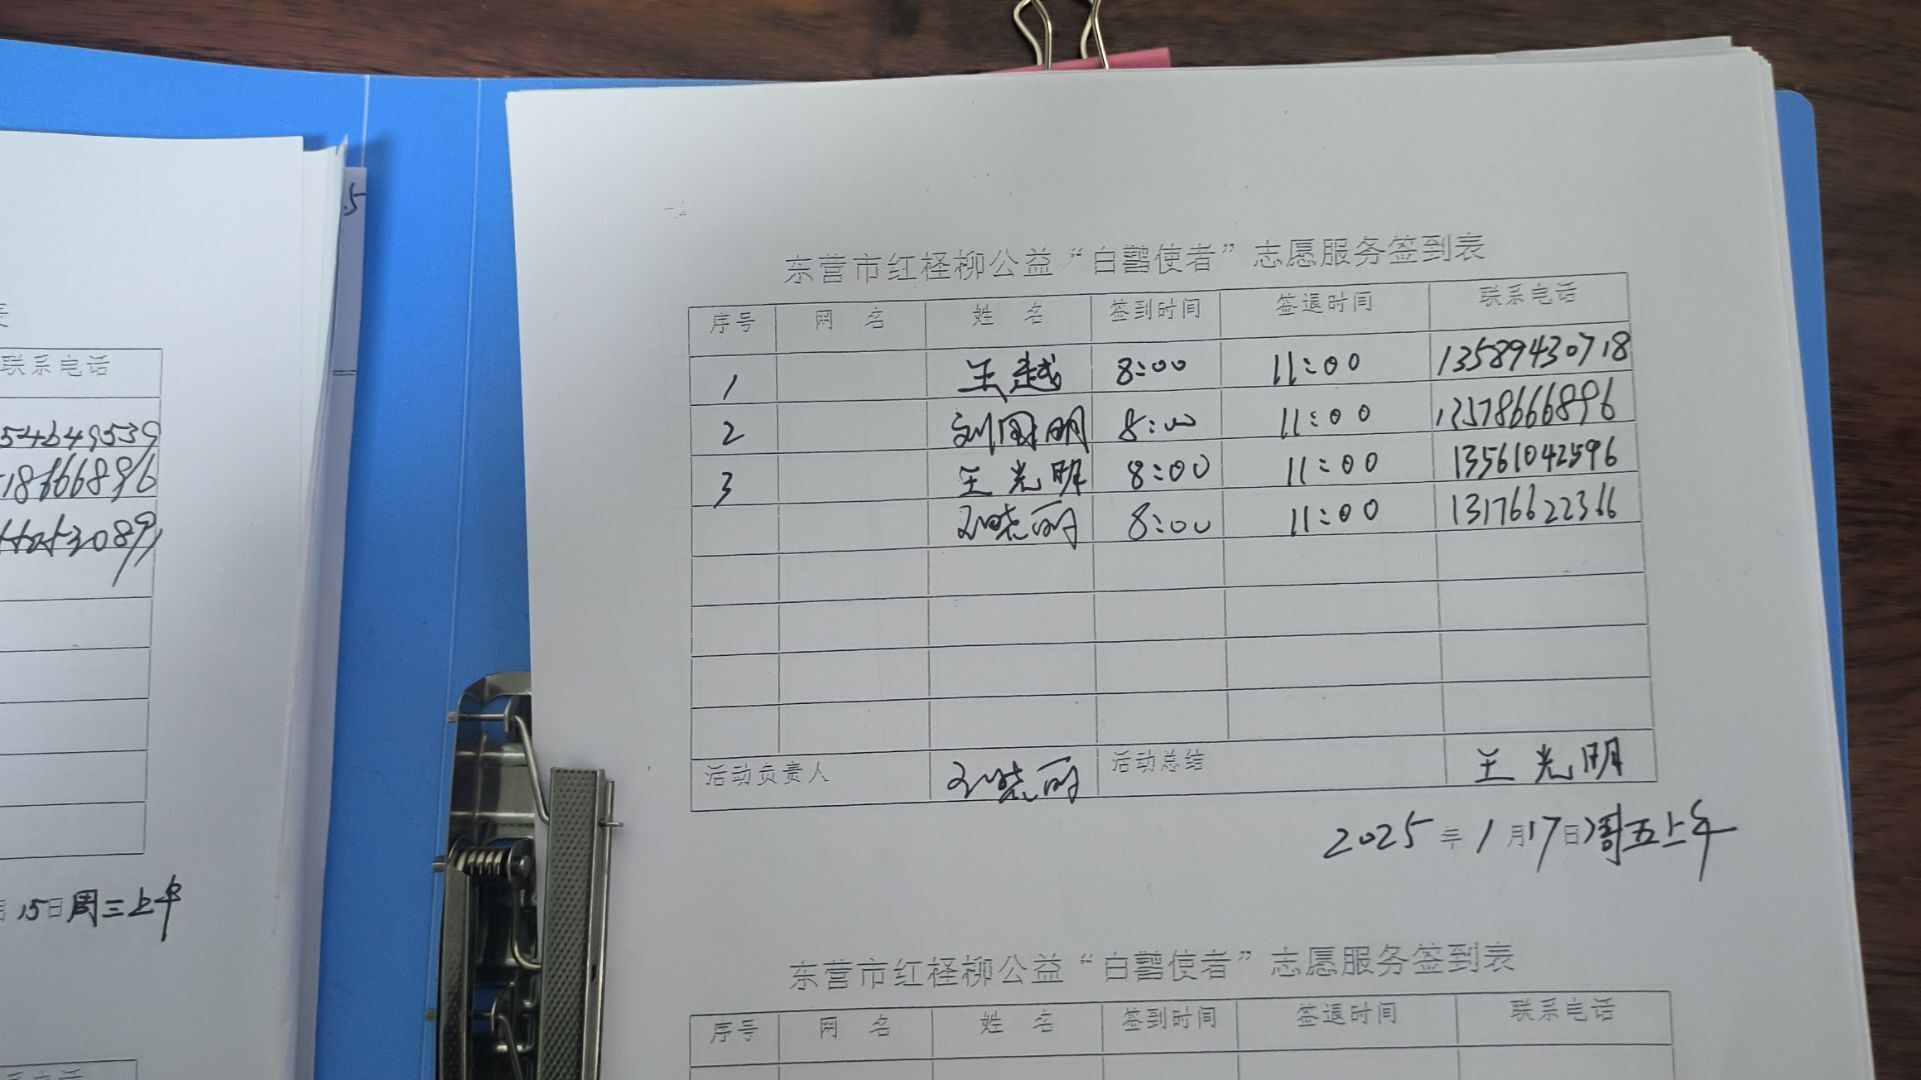 东营市红柽柳公益“白鹳使者”志愿服务签到表
序号 网 名 姓 名 签到时间 签退时间 联系电话
1 王越 8:00 11:00 13589430718
2 刘国明 8:00 11:00 13578666896
3 王光明 8:00 11:00 13561042596
晓丽 8:00 11:00 13176622366
活动负责人 晓丽 活动总结 王光明
2025年1月17日周五上午
东营市红柽柳公益“白鹳使者”志愿服务签到表
序号 网 名 姓 名 签到时间 签退时间 联系电话
表
联系电话
54649539
15日周三上午
.5